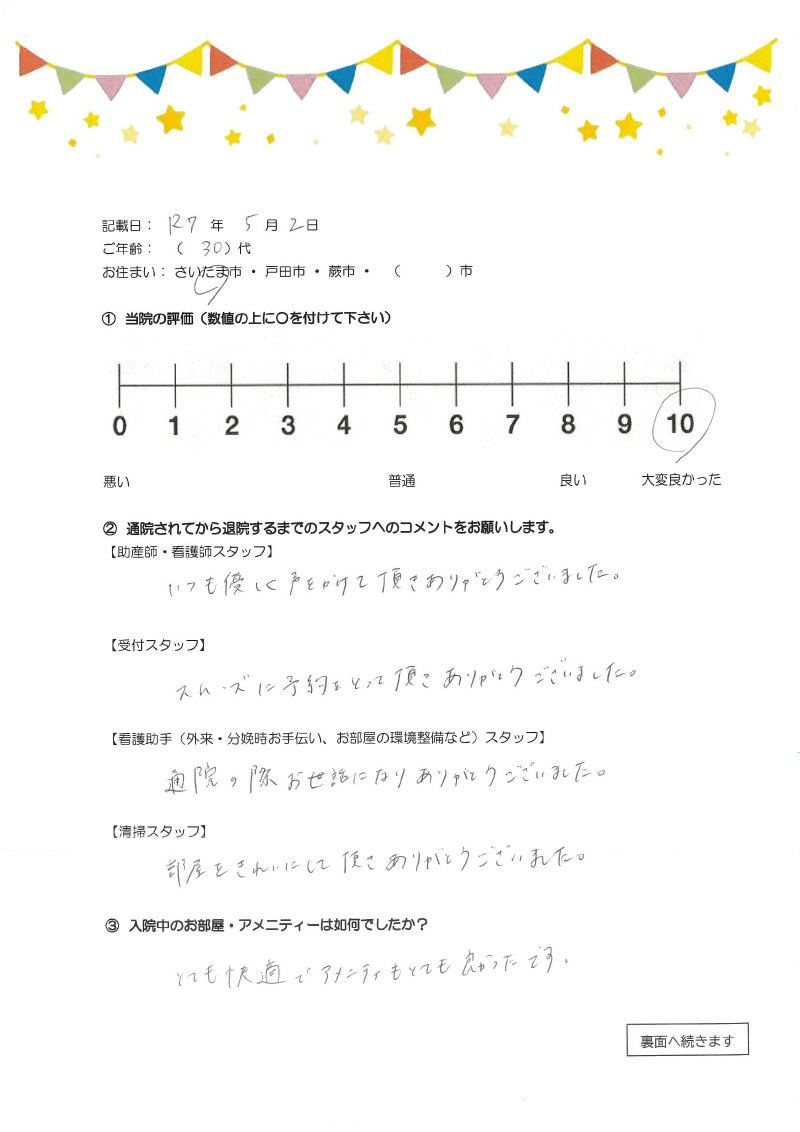 記載日： R7 年 5 月 2 日
ご年齢： （ 30 ）代
お住まい： さいたま市 ・ 戸田市 ・ 蕨市 ・ （ ）市
① 当院の評価（数値の上に〇を付けて下さい）
0 1 2 3 4 5 6 7 8 9 10
悪い 普通 良い 大変良かった
② 通院されてから退院するまでのスタッフへのコメントをお願いします。
【助産師・看護師スタッフ】
いつも優しく声をかけて頂きありがとうございました。
【受付スタッフ】
スムーズに予約をとって頂きありがとうございました。
【看護助手（外来・分娩時お手伝い、お部屋の環境整備など）スタッフ】
通院の際お世話になりありがとうございました。
【清掃スタッフ】
部屋をきれいにして頂きありがとうございました。
③ 入院中のお部屋・アメニティーは如何でしたか？
とても快適でアメニティもとても良かったです。
裏面へ続きます